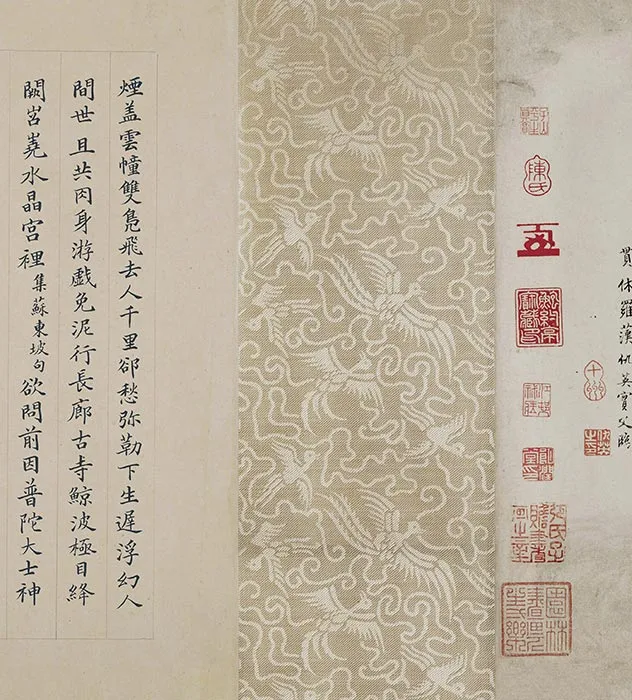 貫休羅漢仇英實父臨
十州
陳氏
煙盖雲幢雙鳧飛去人千里郤愁弥勒下生遲浮幻人
間世且共肉身游戲免泥行長廊古寺鯨波極目絳
闕岧嶤水晶宮裡集蘇東坡句欲問前因普陀大士神